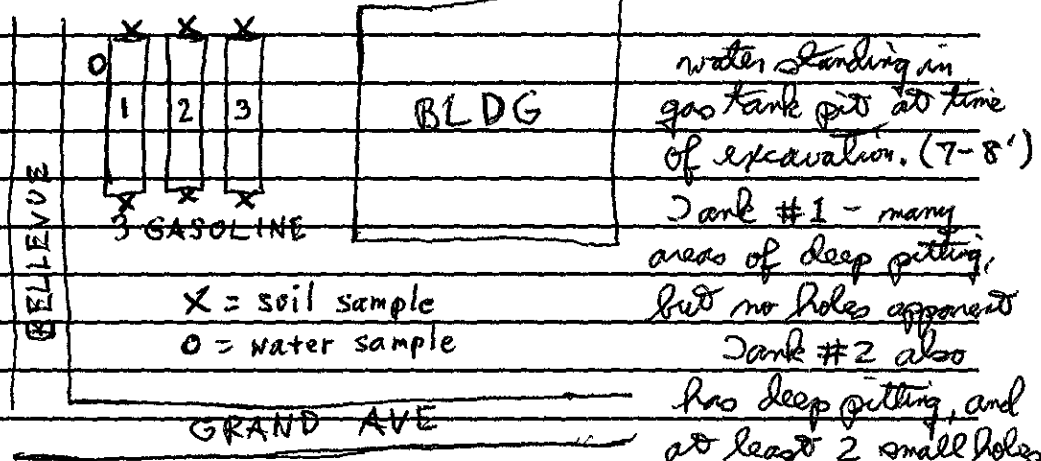 X X X
O
1 2 3
BLDG
3 GASOLINE
X X X
BELLEVUE
X = soil sample
O = water sample
GRAND AVE
water standing in
gas tank pit at time
of excavation. (7-8')
Tank #1 - many
areas of deep pitting,
but no holes apparent
Tank #2 also
has deep pitting, and
at least 2 small holes